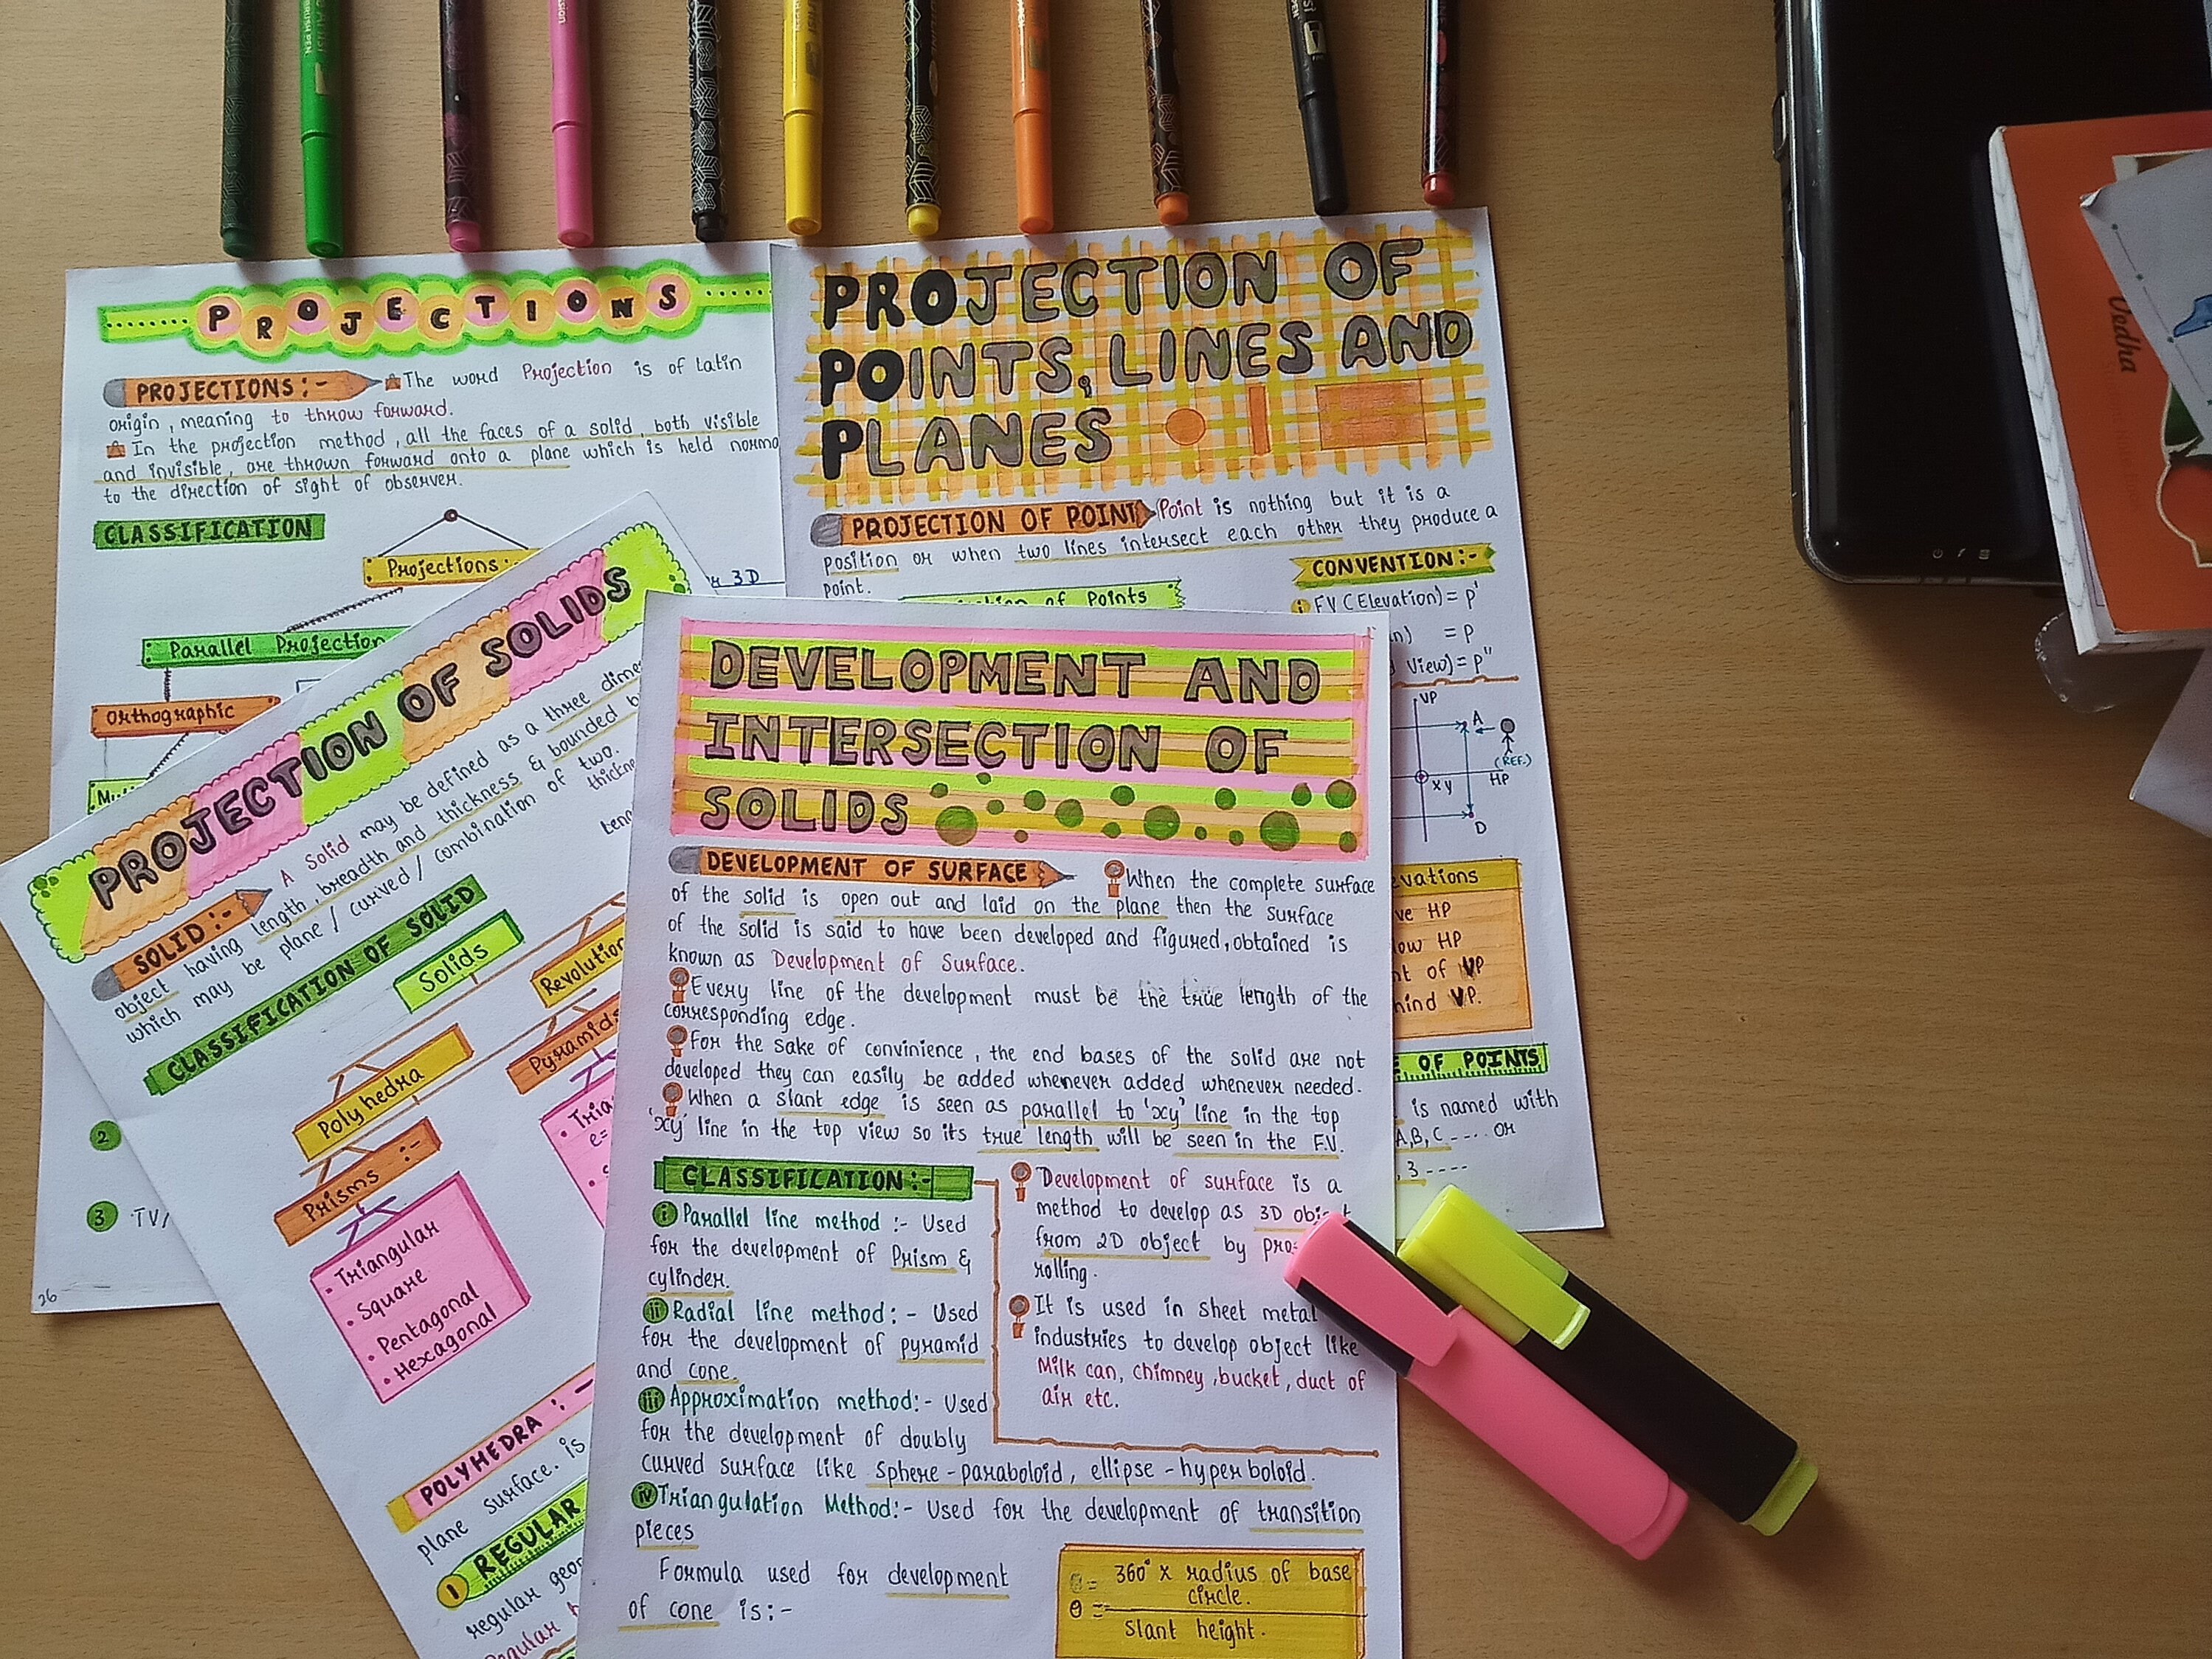 PROJECTIONS
PROJECTIONS:- The word Projection is of Latin
origin, meaning to throw forward.
In the projection method, all the faces of a solid, both visible
and invisible, are thrown forward onto a plane which is held
to the direction of sight of observer.
CLASSIFICATION
Projections:
3D
Parallel Projection
Orthographic
2
3 TV/
26
PROJECTION OF
POINTS, LINES AND
PLANES
PROJECTION OF POINT Point is nothing but it is a
position or when two lines intersect each other they produce a
point.
of Points
CONVENTION:-
i FV (Elevation) = p'
= p
View) = p"
VP
A
(REF.)
xy HP
D
HP
HP
of VP
VP.
OF POINTS
is named with
A,B,C ---- or
3 ----
PROJECTION OF SOLIDS
SOLID:- A Solid may be defined as a three
object having length, breadth and thickness & bounded
which may be plane / curved / combination of two.
CLASSIFICATION OF SOLID
Solids
Revolution
Polyhedra
Pyramids
Prisms :-
• Triangular
• Square
• Pentagonal
• Hexagonal
e=
POLYHEDRA :-
plane surface. is
1 REGULAR
regular
DEVELOPMENT AND
INTERSECTION OF
SOLIDS
DEVELOPMENT OF SURFACE When the complete surface
of the solid is open out and laid on the plane then the surface
of the solid is said to have been developed and figured, obtained is
known as Development of Surface.
Every line of the development must be the true length of the
corresponding edge.
For the sake of convinience, the end bases of the solid are not
developed they can easily be added whenever added whenever needed.
When a slant edge is seen as parallel to 'xy' line in the top
'xy' line in the top view so its true length will be seen in the F.V.
CLASSIFICATION:-
i Parallel line method :- Used
for the development of Prism &
cylinder.
ii Radial line method: - Used
for the development of pyramid
and cone.
iii Approximation method:- Used
for the development of doubly
curved surface like Sphere-paraboloid, ellipse-hyperboloid.
iv Triangulation Method:- Used for the development of transition
pieces
Development of surface is a
method to develop as 3D object
from 2D object by
rolling.
It is used in sheet metal
industries to develop object like
Milk can, chimney, bucket, duct of
air etc.
Formula used for development
of cone is:-
360° x radius of base
circle.
θ =
slant height.
Vedha